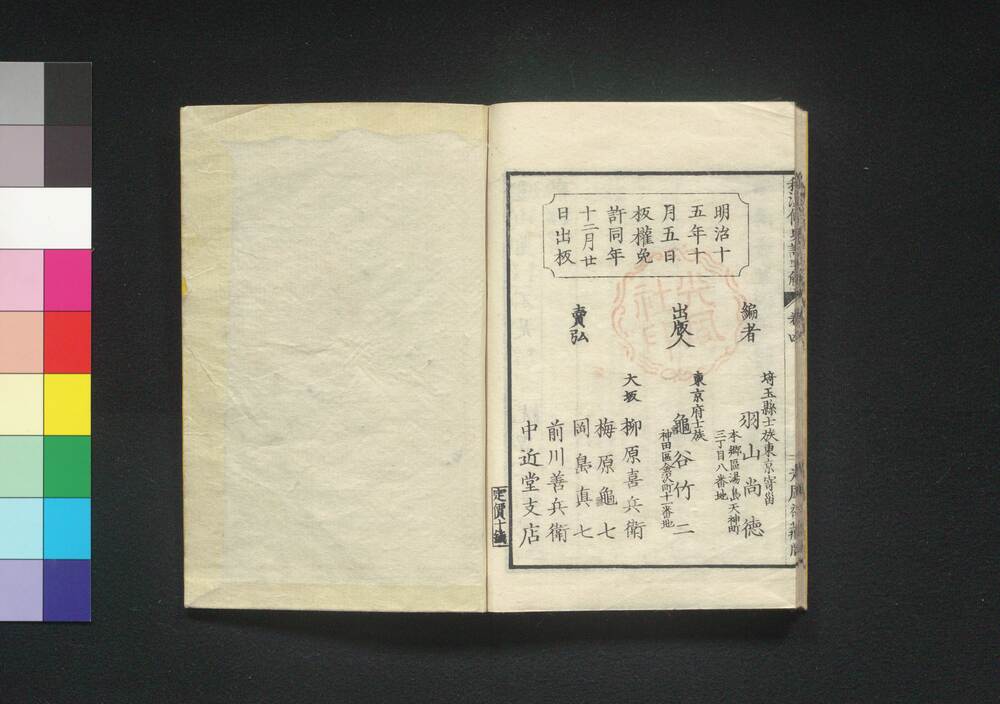 明治十
五年十
月五日
板權免
許同年
十二月廿
日出板
編者
埼玉縣士族東京寄畄
本郷區湯島天神町
三丁目八番地
羽山尚徳
出版人
東京府士族
神田區金沢町十一番地
龜谷竹二
賣弘
大坂
柳原喜兵衛
梅原龜七
岡島真七
前川善兵衛
中近堂支店
定價十錢
卷四